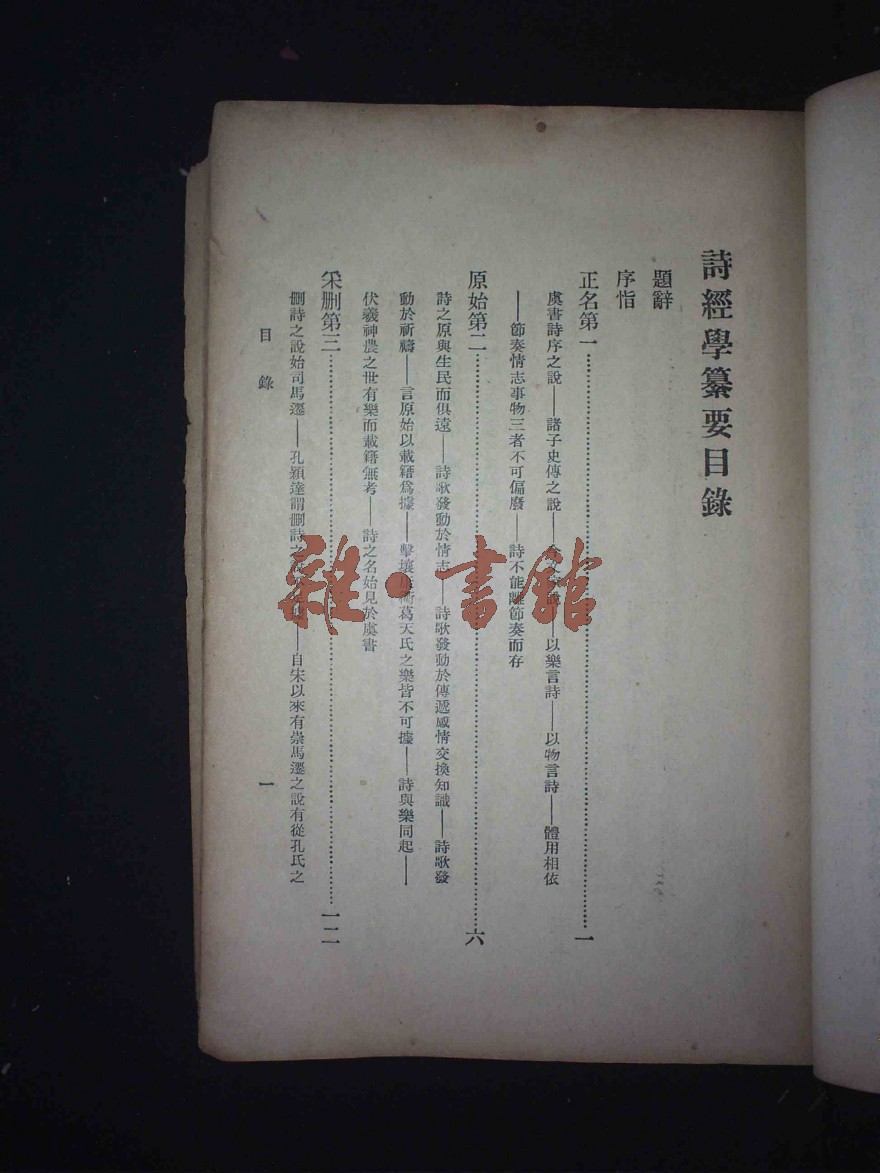 詩經學纂要目錄
題辭
序恉
正名第一………一
虞書詩序之說——諸子史傳之說——說——以樂言詩——以物言詩——體用相依
——節奏情志事物三者不可偏廢——詩不能離節奏而存
原始第二………六
詩之原與生民而俱遠——詩歌發動於情志——詩歌發動於傳遞感情交換知識——詩歌發
動於祈禱——言原始以載籍爲據——擊壤康衢葛天氏之樂皆不可據——詩與樂同起——
伏羲神農之世有樂而載籍無考——詩之名始見於虞書
采刪第三………一二
刪詩之說始司馬遷——孔穎達謂刪詩之——自宋以來有崇馬遷之說有從孔氏之
目錄
一
雜·書館